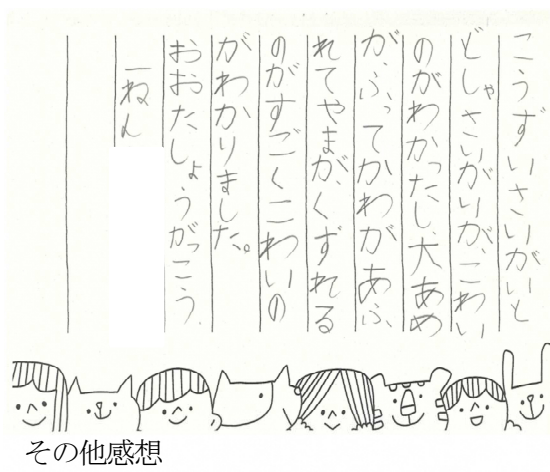 こうずいさいがいと
どしゃさいがいが、こわい
のがわかったし、大あめ
が、ふってかわがあふ
れてやまが、くずれる
のがすごくこわいの
がわかりました。
おおたしょうがっこう、
一ねん
その他感想